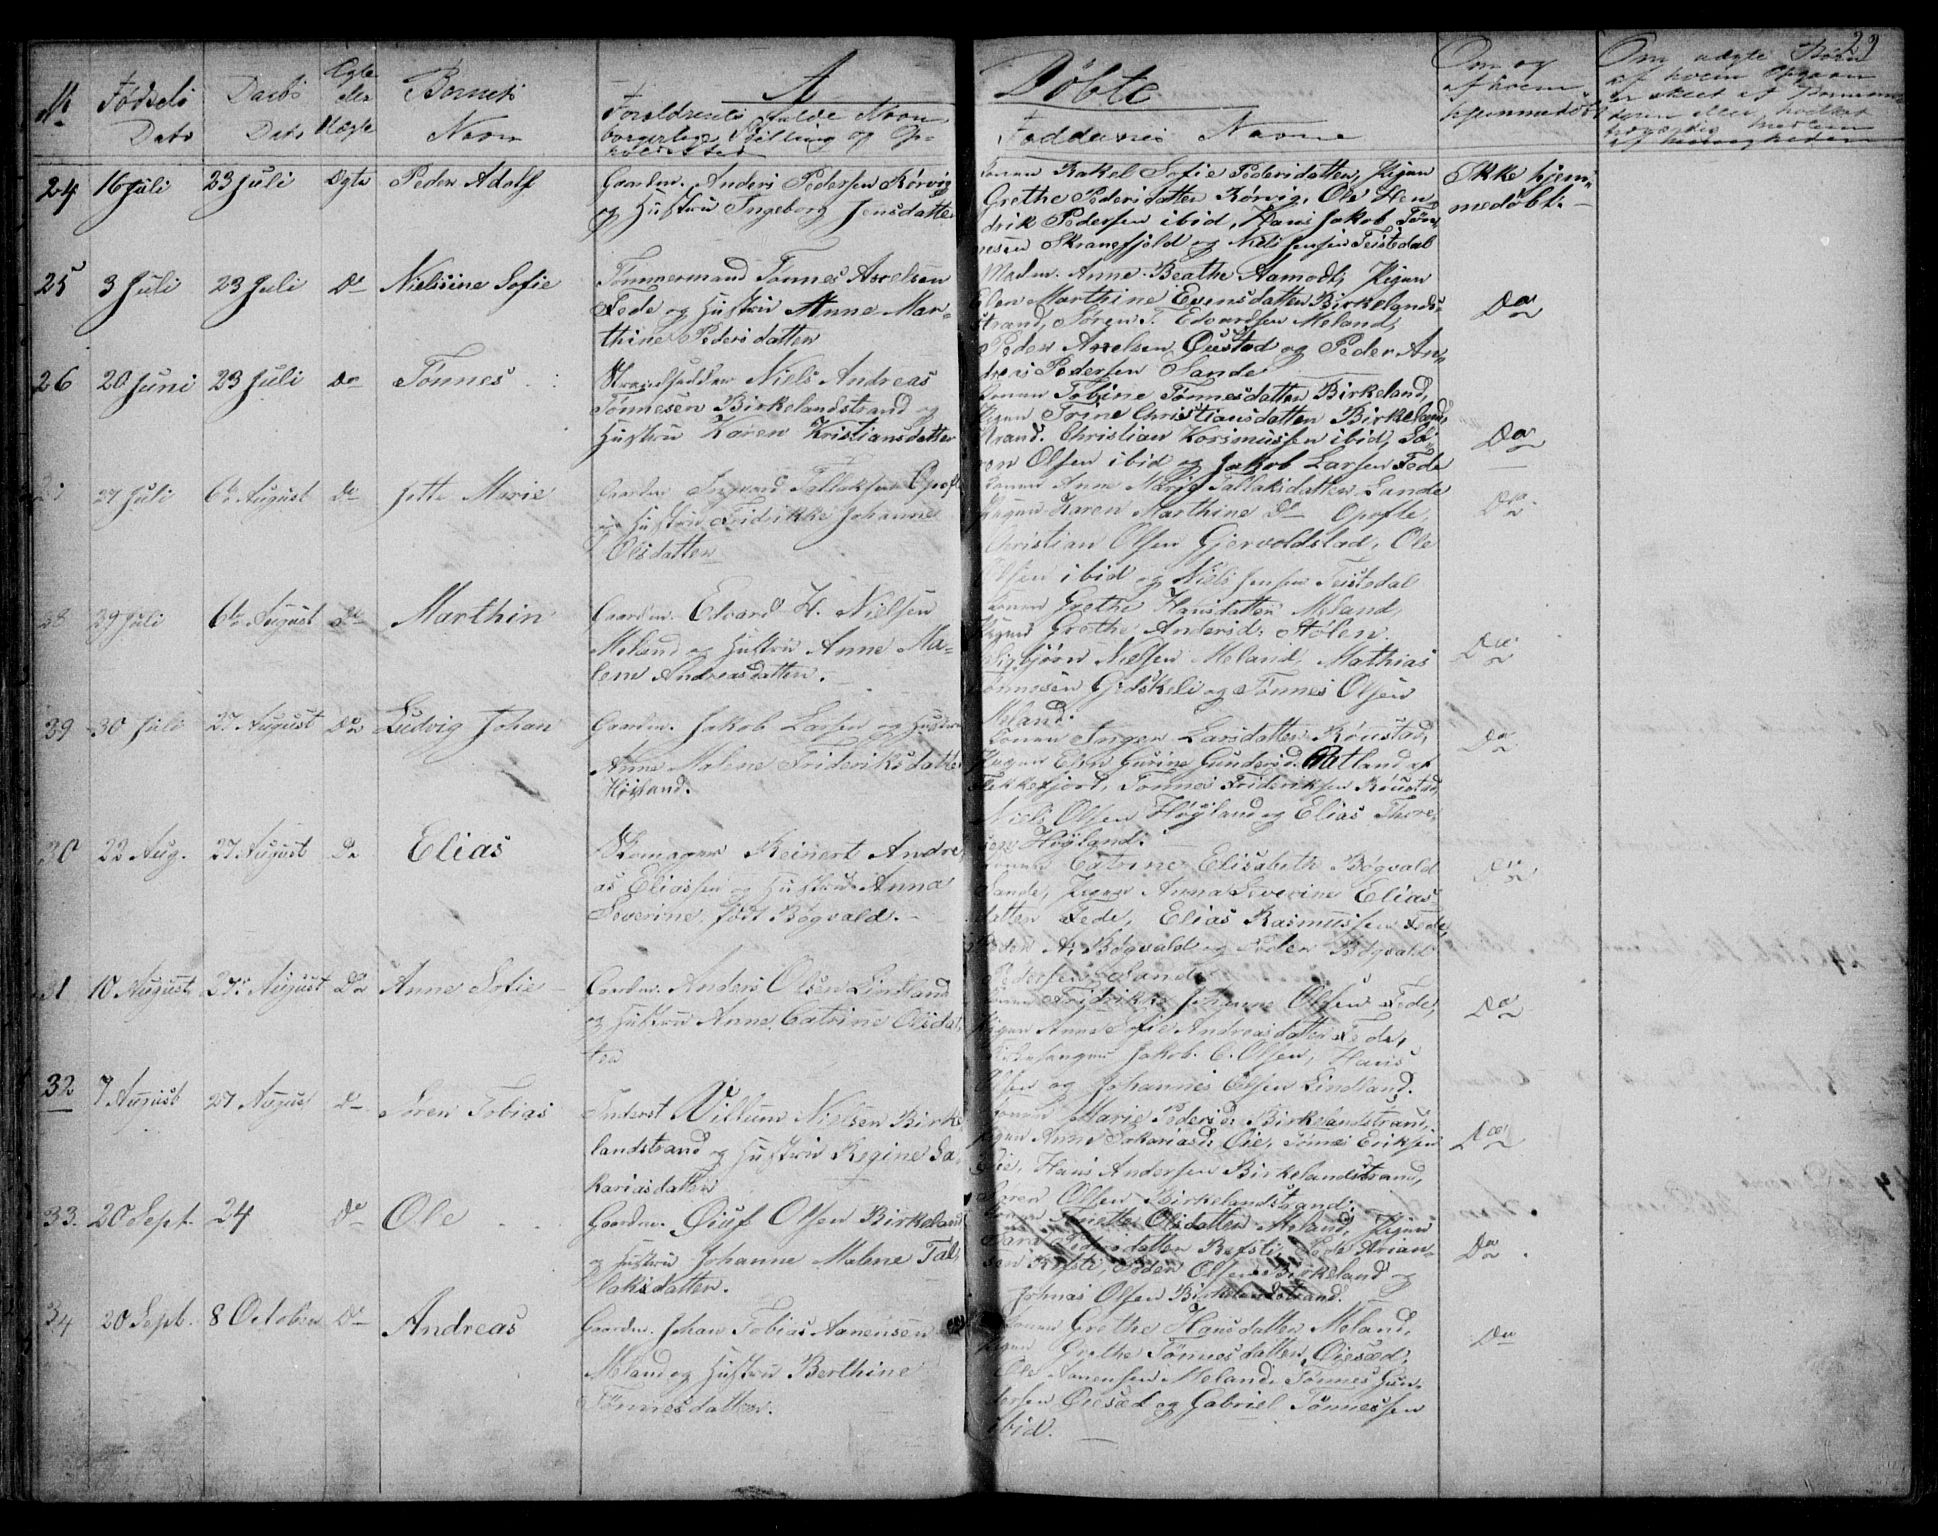 23
№
Fødsels
Dato
Daabs
Dato
Ægte
eller
Uægte
Barnets
Navn
A
Forældrenes fulde Navn
borgerlige Stilling og Op-
holdssted
Døbte
Faddernes Navne
Om og
af hvem
hjemmedøbt
Om uægte Børn
24 16 Juli 23 Juli Ægte Peder Adolf
Gaardm. Anders Pedersen Rørvig
og Hustru Ingeborg Jensdatter
Konen Rakel Sofie Pedersdatter, Pigen
Grethe Pedersdatter Rørvig, Ole Hen-
drik Pedersen ibid, Hans Jakob Tøn-
nesen Skranefjeld og Niels Jensen Teistedal
Ikke hjem-
medøbt.
25 3 Juli 23 Juli Do Nielsine Sofie
Tømmermand Tønnes Axelsen
Fede og Hustru Anne Mar-
thine Pedersdatter
Madm. Anne Beathe Aamodt, Pigen
Elen Marthine Evensdatter Birkelands-
strand, Søren T. Edvardsen Meland,
Peder Axelsen Øiestad og Peder An-
dreas Pedersen Sande
Do
26 20 Juni 23 Juli Do Tønnes
Strandsidder Niels Andreas
Tønnesen Birkelandstrand og
Hustru Karen Kristiansdatter
Konen Tobine Tønnesdatter Birkeland,
Pigen Trine Christiansdatter Birkeland-
strand. Christian Rasmussen ibid, Sø-
ren Olsen ibid og Jakob Larsen Fede
Do
27 27 Juli 6te August Do Jette Marie
Gaardm. Tallaksen Opofte
og Hustru Fridrikke Johanne
Olsdatter
Konen Anne Marie Tallaksdatter Sande
Pigen Karen Marthine Do Opofte,
Christian Olsen Gjervoldstad, Ole
Olsen ibid og Niels Jensen Teistedal
Do
28 29 Juli 6te August Do Marthin
Gaardm. Edvard H. Nielsen
Meland og Hustru Anne Ma-
lene Andreasdatter.
Konen Grethe Hansdatter Meland,
Pigen Grethe Andersd. Stølen.
Sigbjørn Nielsen Meland, Mathias
Tønnesen Gidskeli og Tønnes Olsen
Meland.
Do
29 30 Juli 27 August Do Ludvig Johan
Gaardm. Jakob Larsen og Hustru
Anne Malene Frideriksdatter
Høyland.
Konen Inger Larsdatter Røustad,
Pigen Elen Gurine Gundersd. Øatland af
Flekkefjord, Tønnes Frideriksen Røustad
Niels Olsen Høyland og Elias Thore-
sen Høyland.
Do
30 22 Aug. 27 August Do Elias
Skomager Reinert Andre
as Eliassen og Hustru Anna
Severine, født Bøgvald.
Konen Catrine Elisabeth Bøgvald
Sande, Pigen Anna Severine Elias-
datter Fede, Elias Rasmussen Fede,
Peder A. Bøgvald og Peder Bøgvald
Pedersen Sande
Do
31 10 August 27de August Do Anne Sofie
Gaardm. Anders Olsen Lindland
og Hustru Anne Catrine Olsdat-
ter
Konen Fridrikke Johanne Olsen Fede,
Pigen Anne Sofie Andreasdatter Fede,
Kirkesanger Jakob C. Olsen, Hans
Olsen og Johannes Olsen Lindland.
Do
32 7 August 27 August Do Søren Tobias
Inderst Villum Nielsen Birke
landstrand og Hustru Regine Sa-
kariasdatter
Konen Marie Pedersd. Birkelandstrand,
Pigen Anne Sakariasd. Øie, Tønnes Eriksen
Øie, Hans Andersen Birkelandstrand,
Søren Olsen Birkelandstrand.
Do
33. 20 Sept. 24 Do Ole
Gaardm. Øiuf Olsen Birkeland
og Hustru Johanne Malene Tal-
laksdatter.
Konen Jonette Olsdatter Meland, Pigen
Sara Pedersdatter Refsti, Peder Arian-
sen Refsti, Peder Olsen Birkeland og
Johnas Olsen Birkelandstrand.
Do
34 20 Sept. 8 October Do Andreas
Gaardm. Johan Tobias Aanensen
Meland og Hustru Berthine
Tønnesdatter.
Konen Grethe Hansdatter Meland,
Pigen Grethe Tønnesdatter Øiesæd,
Ole Aanensen Meland, Tønnes Gun-
dersen Øiesæd og Gabriel Tønnessen
ibid.
Do